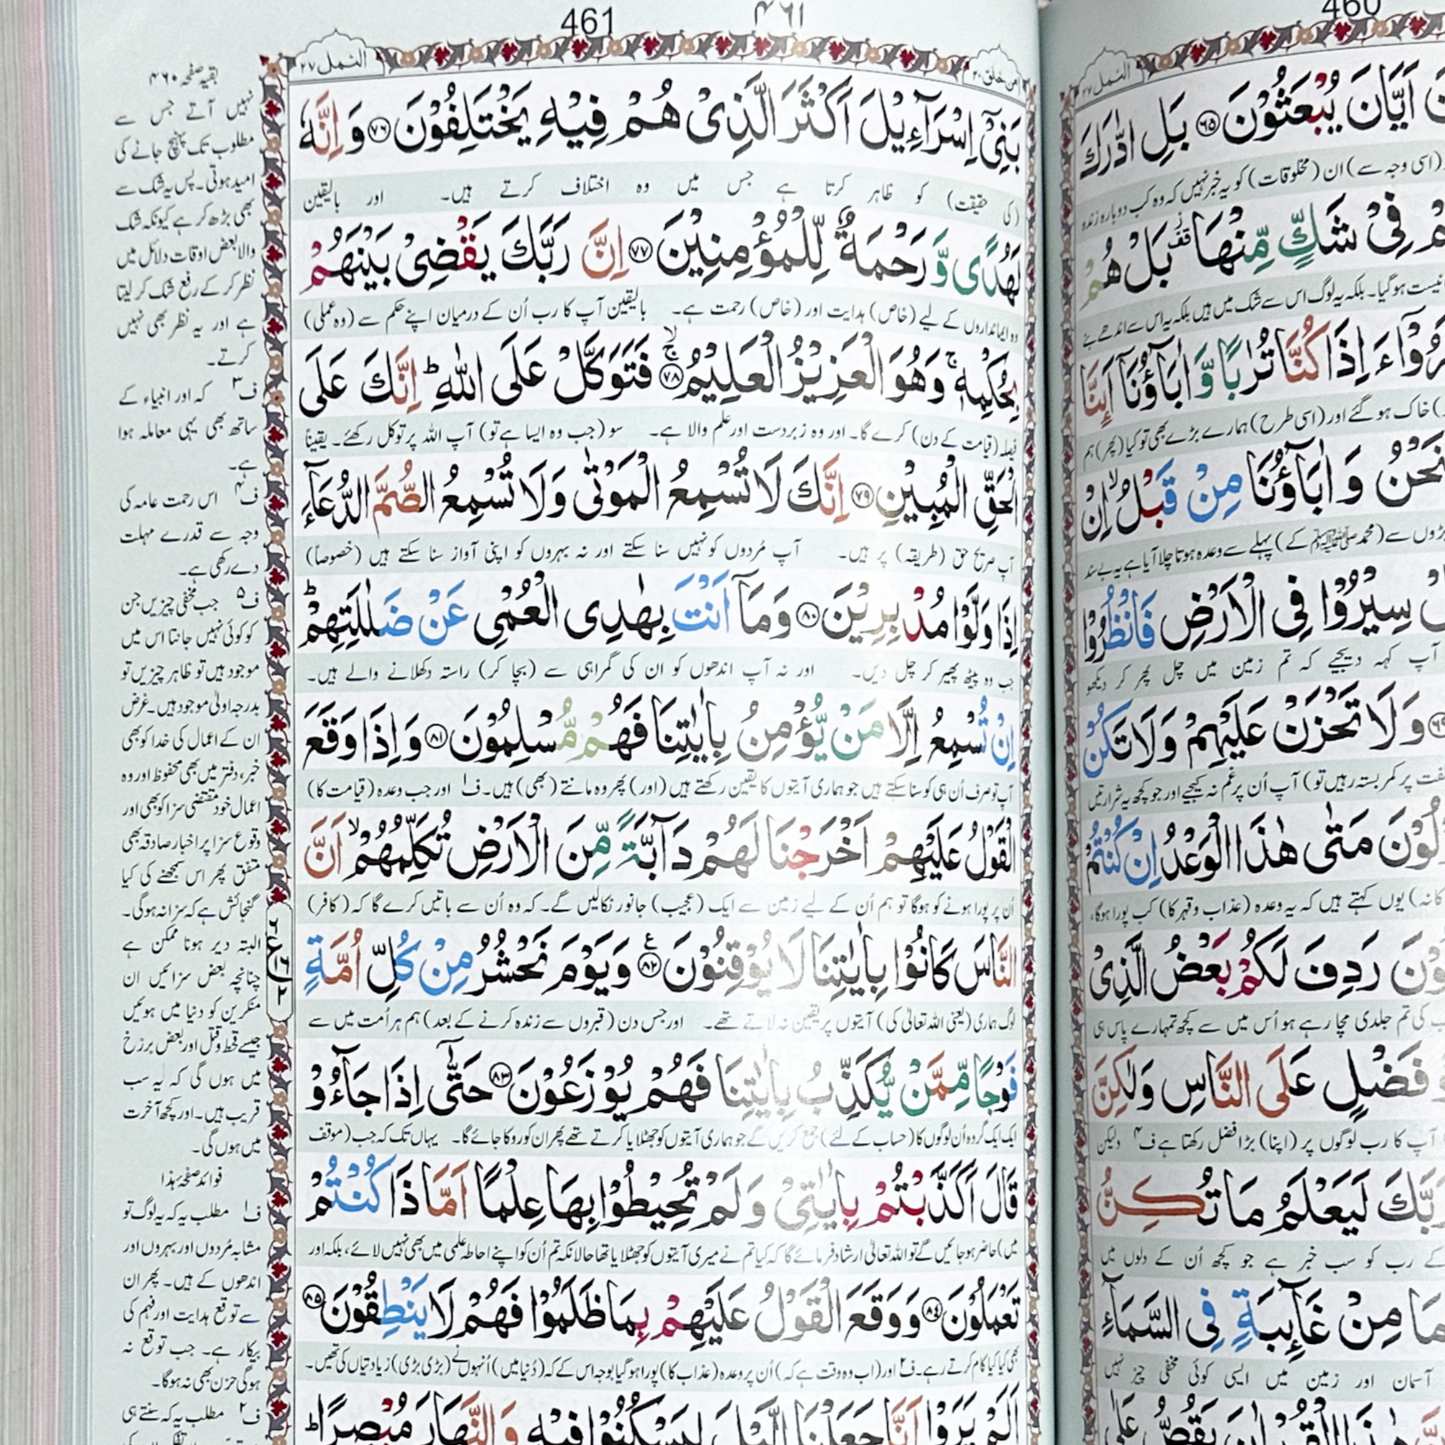 460
461
۴۶۱
النمل ۲۷
امن خلق ۲۰
بَنِیْۤ اِسْرَآءِیْلَ اَكْثَرَ الَّذِیْ هُمْ فِیْهِ یَخْتَلِفُوْنَ ﴿۷۶﴾ وَ اِنَّهٗ
(کی حقیقت) کو ظاہر کرتا ہے جس میں وہ اختلاف کرتے ہیں۔ اور بالیقین
لَهُدًی وَّ رَحْمَةٌ لِّلْمُؤْمِنِیْنَ ﴿۷۷﴾ اِنَّ رَبَّكَ یَقْضِیْ بَیْنَهُمْ
وہ ایمانداروں کے لیے (خاص) ہدایت اور (خاص) رحمت ہے۔ بالیقین آپ کا رب اُن کے درمیان اپنے حکم سے (وہ عملی)
بِحُكْمِهٖ ۚ وَ هُوَ الْعَزِیْزُ الْعَلِیْمُ ﴿۷۸﴾ فَتَوَكَّلْ عَلَی اللّٰهِ ؕ اِنَّكَ عَلَی
فیصلہ (قیامت کے دن) کرے گا۔ اور وہ زبردست اور علم والا ہے۔ سو (جب وہ ایسا ہے تو) آپ اللہ پر توکل رکھئے۔ یقیناً
الْحَقِّ الْمُبِیْنِ ﴿۷۹﴾ اِنَّكَ لَا تُسْمِعُ الْمَوْتٰی وَ لَا تُسْمِعُ الصُّمَّ الدُّعَآءَ
آپ صریح حق (طریقہ) پر ہیں۔ آپ مُردوں کو نہیں سنا سکتے اور نہ بہروں کو اپنی آواز سنا سکتے ہیں (خصوصاً)
اِذَا وَلَّوْا مُدْبِرِیْنَ ﴿۸۰﴾ وَ مَاۤ اَنْتَ بِهٰدِی الْعُمْیِ عَنْ ضَلٰلَتِهِمْ ؕ
جب وہ پیٹھ پھیر کر چل دیں۔ اور نہ آپ اندھوں کو ان کی گمراہی سے (بچا کر) راستہ دکھلانے والے ہیں۔
اِنْ تُسْمِعُ اِلَّا مَنْ یُّؤْمِنُ بِاٰیٰتِنَا فَهُمْ مُّسْلِمُوْنَ ﴿۸۱﴾ وَ اِذَا وَقَعَ
آپ تو صرف اُن ہی کو سنا سکتے ہیں جو ہماری آیتوں کا یقین رکھتے ہیں (اور) پھر وہ مانتے (بھی) ہیں۔ ف۱ اور جب وعدہ (قیامت کا)
الْقَوْلُ عَلَیْهِمْ اَخْرَجْنَا لَهُمْ دَآبَّةً مِّنَ الْاَرْضِ تُكَلِّمُهُمْ ۙ اَنَّ
اُن پر پورا ہونے کو ہوگا تو ہم اُن کے لیے زمین سے ایک (عجیب) جانور نکالیں گے۔ کہ وہ اُن سے باتیں کرے گا کہ (کافر)
النَّاسَ كَانُوْا بِاٰیٰتِنَا لَا یُوْقِنُوْنَ ﴿۸۲﴾ وَ یَوْمَ نَحْشُرُ مِنْ كُلِّ اُمَّةٍ
لوگ ہماری (یعنی اللہ تعالیٰ کی) آیتوں پر یقین نہ لاتے تھے۔ اور جس دن (قبروں سے زندہ کرنے کے بعد) ہم ہر اُمت میں سے
فَوْجًا مِّمَّنْ یُّكَذِّبُ بِاٰیٰتِنَا فَهُمْ یُوْزَعُوْنَ ﴿۸۳﴾ حَتّٰۤی اِذَا جَآءُوْ
ایک ایک گروہ اُن لوگوں کا (حساب کے لئے) جمع کریں گے جو ہماری آیتوں کو جھٹلایا کرتے تھے پھر ان کو روکا جائے گا۔ یہاں تک کہ جب (موقف
قَالَ اَكَذَّبْتُمْ بِاٰیٰتِیْ وَ لَمْ تُحِیْطُوْا بِهَا عِلْمًا اَمَّا ذَا كُنْتُمْ
میں) حاضر ہو جائیں گے تو اللہ تعالیٰ ارشاد فرمائے گا کہ کیا تم نے میری آیتوں کو جھٹلایا تھا حالانکہ تم اُن کو اپنے احاطہ علمی میں بھی نہیں لائے، بلکہ اور
تَعْمَلُوْنَ ﴿۸۴﴾ وَ وَقَعَ الْقَوْلُ عَلَیْهِمْ بِمَا ظَلَمُوْا فَهُمْ لَا یَنْطِقُوْنَ ﴿۸۵﴾
بھی کیا کیا کام کرتے رہے۔ ف۲ اور (اب وہ وقت ہے کہ) اُن پر وعدہ (عذاب کا) پورا ہوگیا بوجہ اس کے کہ (دُنیا میں) اُنہوں نے (بڑی بڑی) زیادتیاں کی تھیں۔
اَلَمْ یَرَوْا اَنَّا جَعَلْنَا الَّیْلَ لِیَسْكُنُوْا فِیْهِ وَ النَّهَارَ مُبْصِرًا ؕ
بقیہ صفحہ ۴۶۰
نہیں آتے جس سے
مطلوب تک پہنچ جانے کی
امید ہوتی۔ پس یہ شک سے
بھی بڑھ کر ہے کیونکہ شک
والا بعض اوقات دلائل میں
نظر کر کے رفع شک کر لیتا
ہے اور یہ نظر بھی نہیں
کرتے۔
ف۳ کہ اور انبیاء کے
ساتھ بھی یہی معاملہ ہوا
ہے۔
ف۴ اس رحمت عامہ کی
وجہ سے قدرے مہلت
دے رکھی ہے۔
ف۵ جب مخفی چیزیں جن
کو کوئی نہیں جانتا اس میں
موجود ہیں تو ظاہر چیزیں تو
بدرجہ اولیٰ موجود ہیں۔ غرض
ان کے اعمال کی خدا کو بھی
خبر، دفتر میں بھی محفوظ اور وہ
اعمال خود مقتضی سزا کو بھی اور
وقوع سزا پر اخبار صادقہ بھی
متفق پھر اس سمجھنے کی کیا
گنجائش ہے کہ سزا نہ ہوگی۔
البتہ دیر ہونا ممکن ہے
چنانچہ بعض سزائیں ان
منکرین کو دنیا میں ہوئیں
جیسے قحط و قتل اور بعض برزخ
میں ہوں گی کہ یہ سب
قریب ہیں۔ اور کچھ آخرت
میں ہوں گی۔
فوائد صفحہ ہٰذا
ف۱ مطلب یہ کہ یہ لوگ تو
مشابہ مُردوں اور بہروں اور
اندھوں کے ہیں۔ پھر ان
سے توقع ہدایت اور فہم کی
بیکار ہے۔ جب توقع نہ
ہوگی حزن بھی نہ ہوگا۔
ف۲ مطلب یہ کہ سنتے ہی
النمل ۲۷
اَیَّانَ یُبْعَثُوْنَ ﴿۶۵﴾ بَلِ ادّٰرَكَ
(اسی وجہ سے) ان (مخلوقات) کو یہ خبر نہیں کہ وہ کب دوبارہ زندہ
فِیْ شَكٍّ مِّنْهَا ۫ بَلْ هُمْ
نیست ہوگیا۔ بلکہ یہ لوگ اس سے شک میں ہیں بلکہ یہ اس سے اندھے بنے
اِذَا كُنَّا تُرٰبًا وَّ اٰبَآؤُنَاۤ اَئِنَّا
خاک ہو گئے اور (اسی طرح) ہمارے بڑے بھی تو کیا (پھر) ہم
نَحْنُ وَ اٰبَآؤُنَا مِنْ قَبْلُ ۙ اِنْ
بڑوں سے (محمد ﷺ کے) پہلے سے وعدہ ہوتا چلا آیا ہے یہ بے سند
سِیْرُوْا فِی الْاَرْضِ فَانْظُرُوْا
آپ کہہ دیجیے کہ تم زمین میں چل پھر کر دیکھو
وَ لَا تَحْزَنْ عَلَیْهِمْ وَ لَا تَكُنْ
پر کمر بستہ رہیں تو) آپ اُن پر غم نہ کیجیے اور جو کچھ یہ شرارتیں
مَتٰی هٰذَا الْوَعْدُ اِنْ كُنْتُمْ
یوں کہتے ہیں کہ یہ وعدہ (عذاب و قہر کا) کب پورا ہوگا،
رَدِفَ لَكُمْ بَعْضُ الَّذِیْ
کی تم جلدی مچا رہے ہو اُس میں سے کچھ تمہارے پاس ہی
فَضْلٍ عَلَی النَّاسِ وَ لٰكِنَّ
آپ کا رب لوگوں پر (اپنا) بڑا فضل رکھتا ہے ف۴ ولیکن
رَبَّكَ لَیَعْلَمُ مَا تُكِنُّ
کے رب کو سب خبر ہے جو کچھ اُن کے دلوں میں
مَا مِنْ غَآئِبَةٍ فِی السَّمَآءِ
آسمان اور زمین میں ایسی کوئی مخفی چیز نہیں
هٰذَا الْقُرْاٰنَ یَقُصُّ عَلٰی